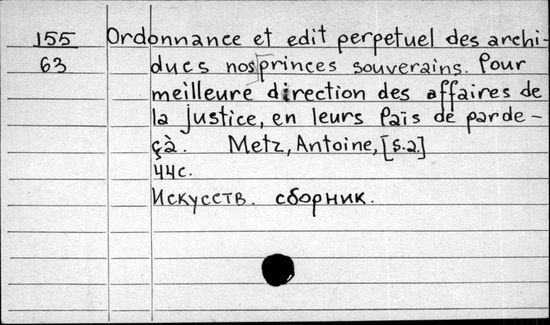 155 Ordonnance et edit perpetuel des archi-
63 ducs nos princes souverains. Pour
meilleure direction des affaires de
la justice, en leurs Païs de parde-
çà. Metz, Antoine, [s.a.]
44c.
Искусств. сборник.